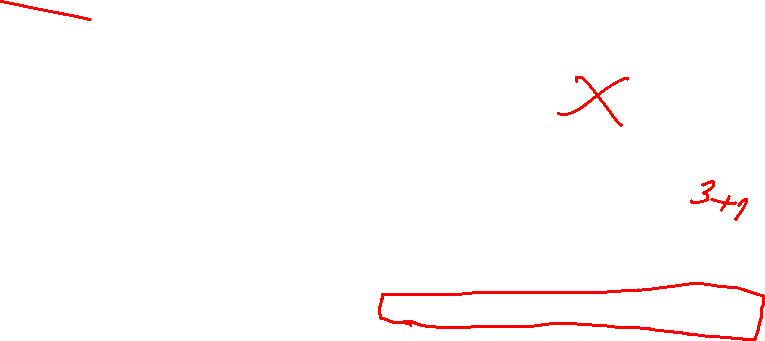 x
3+1